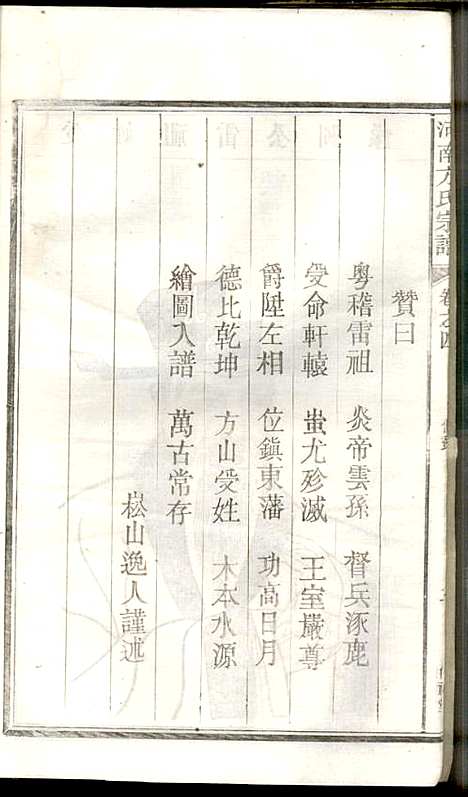 河南方氏宗譜
卷之四
贊曰
粵稽雷祖 炎帝雲孫 督兵涿鹿
受命軒轅 蚩尤殄滅 王室嚴尊
爵陞左相 位鎮東藩 功高日月
德比乾坤 方山受姓 木本水源
繪圖入譜 萬古常存
崧山逸人謹述